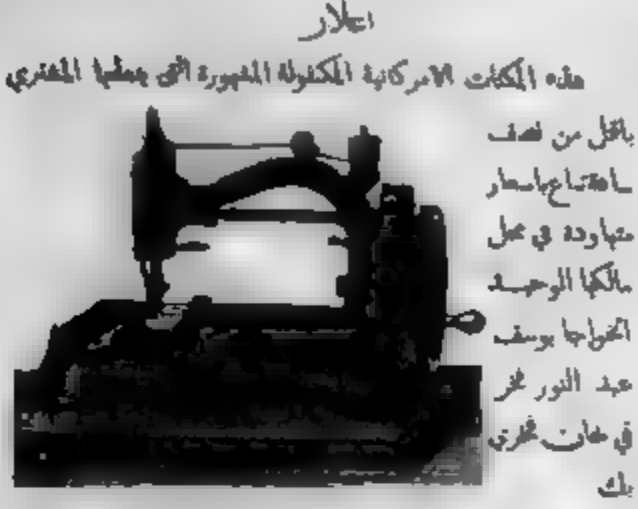 اعلان
هذه المكنات الامركانية المكفولة المشهورة التى يتعلمها المشتري
باقل من نصف
ساعة تباع باسعار
متهاودة في محل
مالكها الوحيد
الخواجا يوسف
عبد النور نحر
في خان فخري
بك